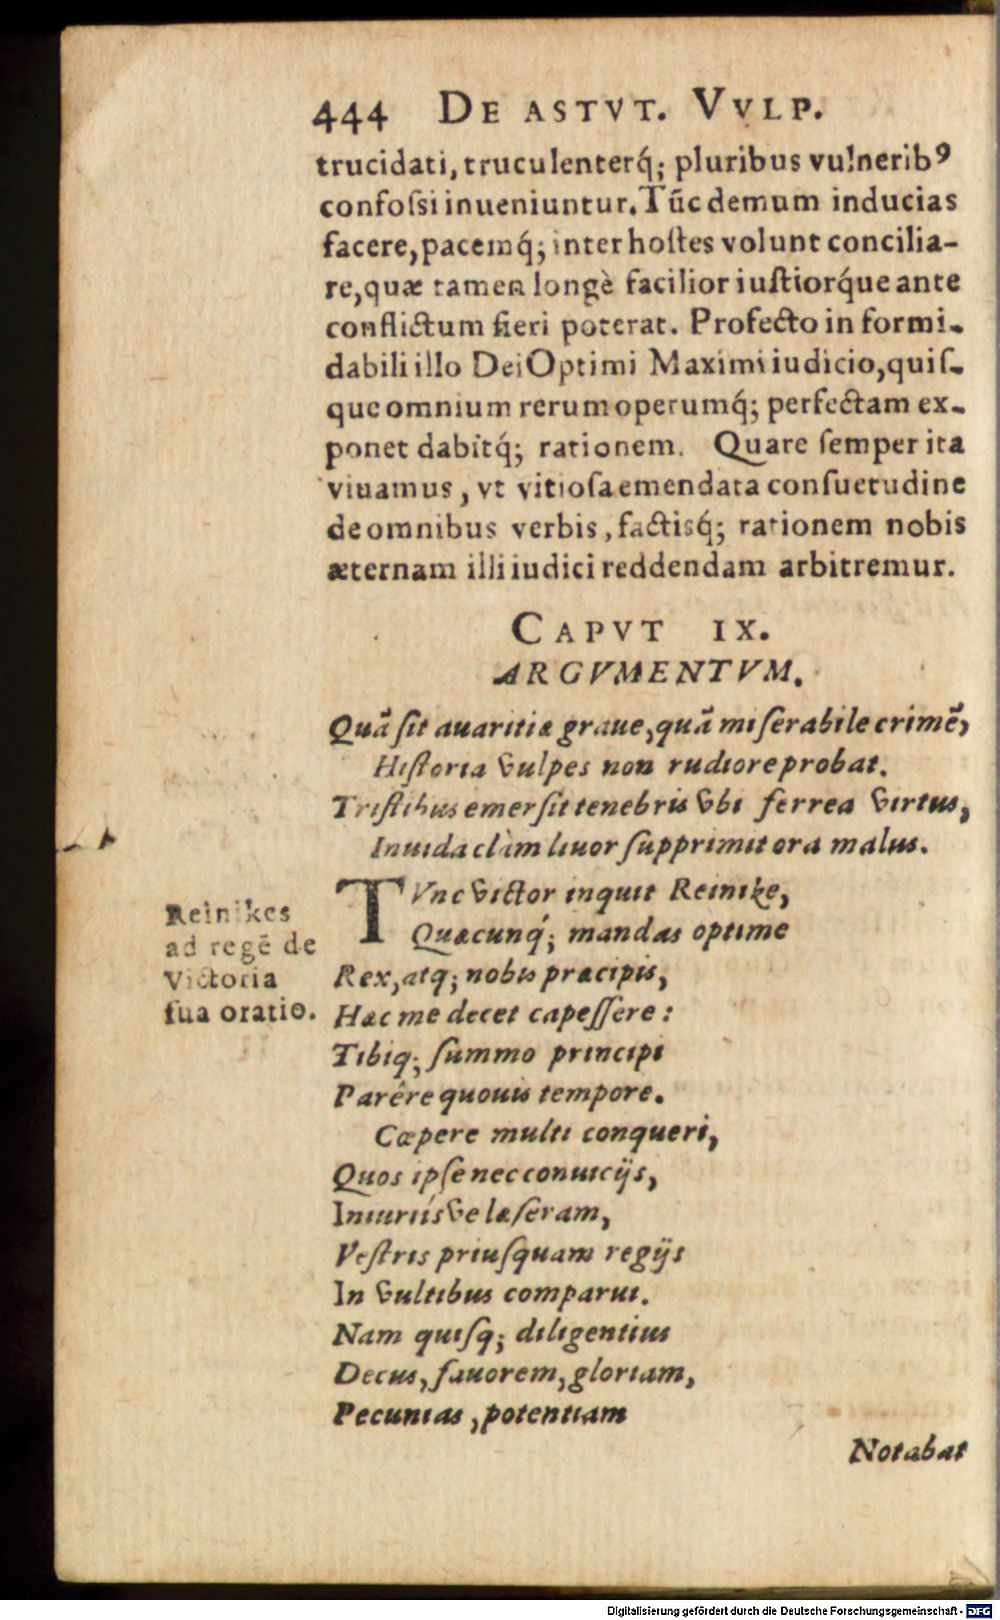 444 DE ASTVT. VVLP.
trucidati, truculenterq́; pluribus vulneribꝰ
confoſsi inueniuntur. Tũc demum inducias
facere, pacemq́; inter hoſtes volunt concilia-
re, quæ tamen longè facilior iuſtiorq́ue ante
conflictum fieri poterat. Profecto in formi-
dabili illo Dei Optimi Maximi iudicio, quiſ-
que omnium rerum operumq́; perfectam ex-
ponet dabitq́; rationem. Quare ſemper ita
viuamus, vt vitioſa emendata conſuetudine
de omnibus verbis, factisq́; rationem nobis
æternam illi iudici reddendam arbitremur.
CAPVT IX.
ARGVMENTVM.
Quã ſit auaritiæ graue, quã miſerabile crimẽ,
Hiſtoria vulpes non rudiore probat.
Triſtibus emerſit tenebris vbi ferrea virtus,
Inuida clàm liuor ſupprimit ora malus.
Reinikes
ad regẽ de
Victoria
ſua oratio.
TVnc victor inquit Reinike,
Quæcunq́; mandas optime
Rex, atq; nobis præcipis,
Hæc me decet capeſſere:
Tibiq; ſummo principi
Parêre quouis tempore.
Cœpere multi conqueri,
Quos ipſe nec conuicijs,
Iniuriísve læſeram,
Veſtris priuſquam regijs
In vultibus comparui.
Nam quiſq; diligentius
Decus, fauorem, gloriam,
Pecunias, potentiam
Notabat
Digitalisierung gefördert durch die Deutsche Forschungsgemeinschaft - DFG